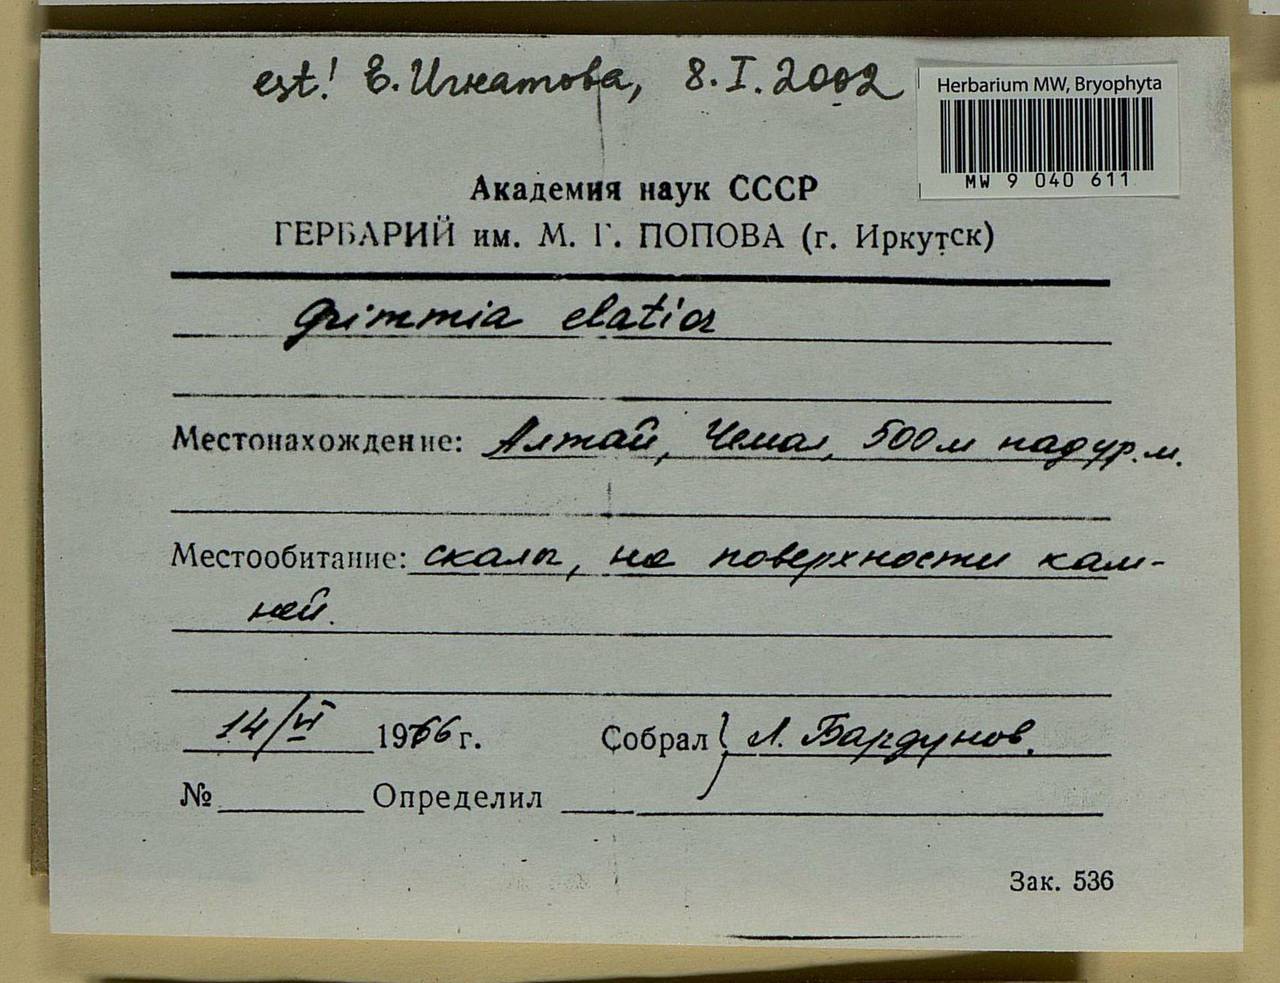 est! Е. Игнатова, 8.I.2002
Herbarium MW, Bryophyta
MW 9 040 611
Академия наук СССР
ГЕРБАРИЙ им. М. Г. ПОПОВА (г. Иркутск)
Grimmia elatior
Местонахождение: Алтай, Чемал, 500 м над ур. м.
Местообитание: скалы, на поверхности кам-
ней.
14/VI 1966 г. Собрал Л. Бардунов.
№ Определил
Зак. 536